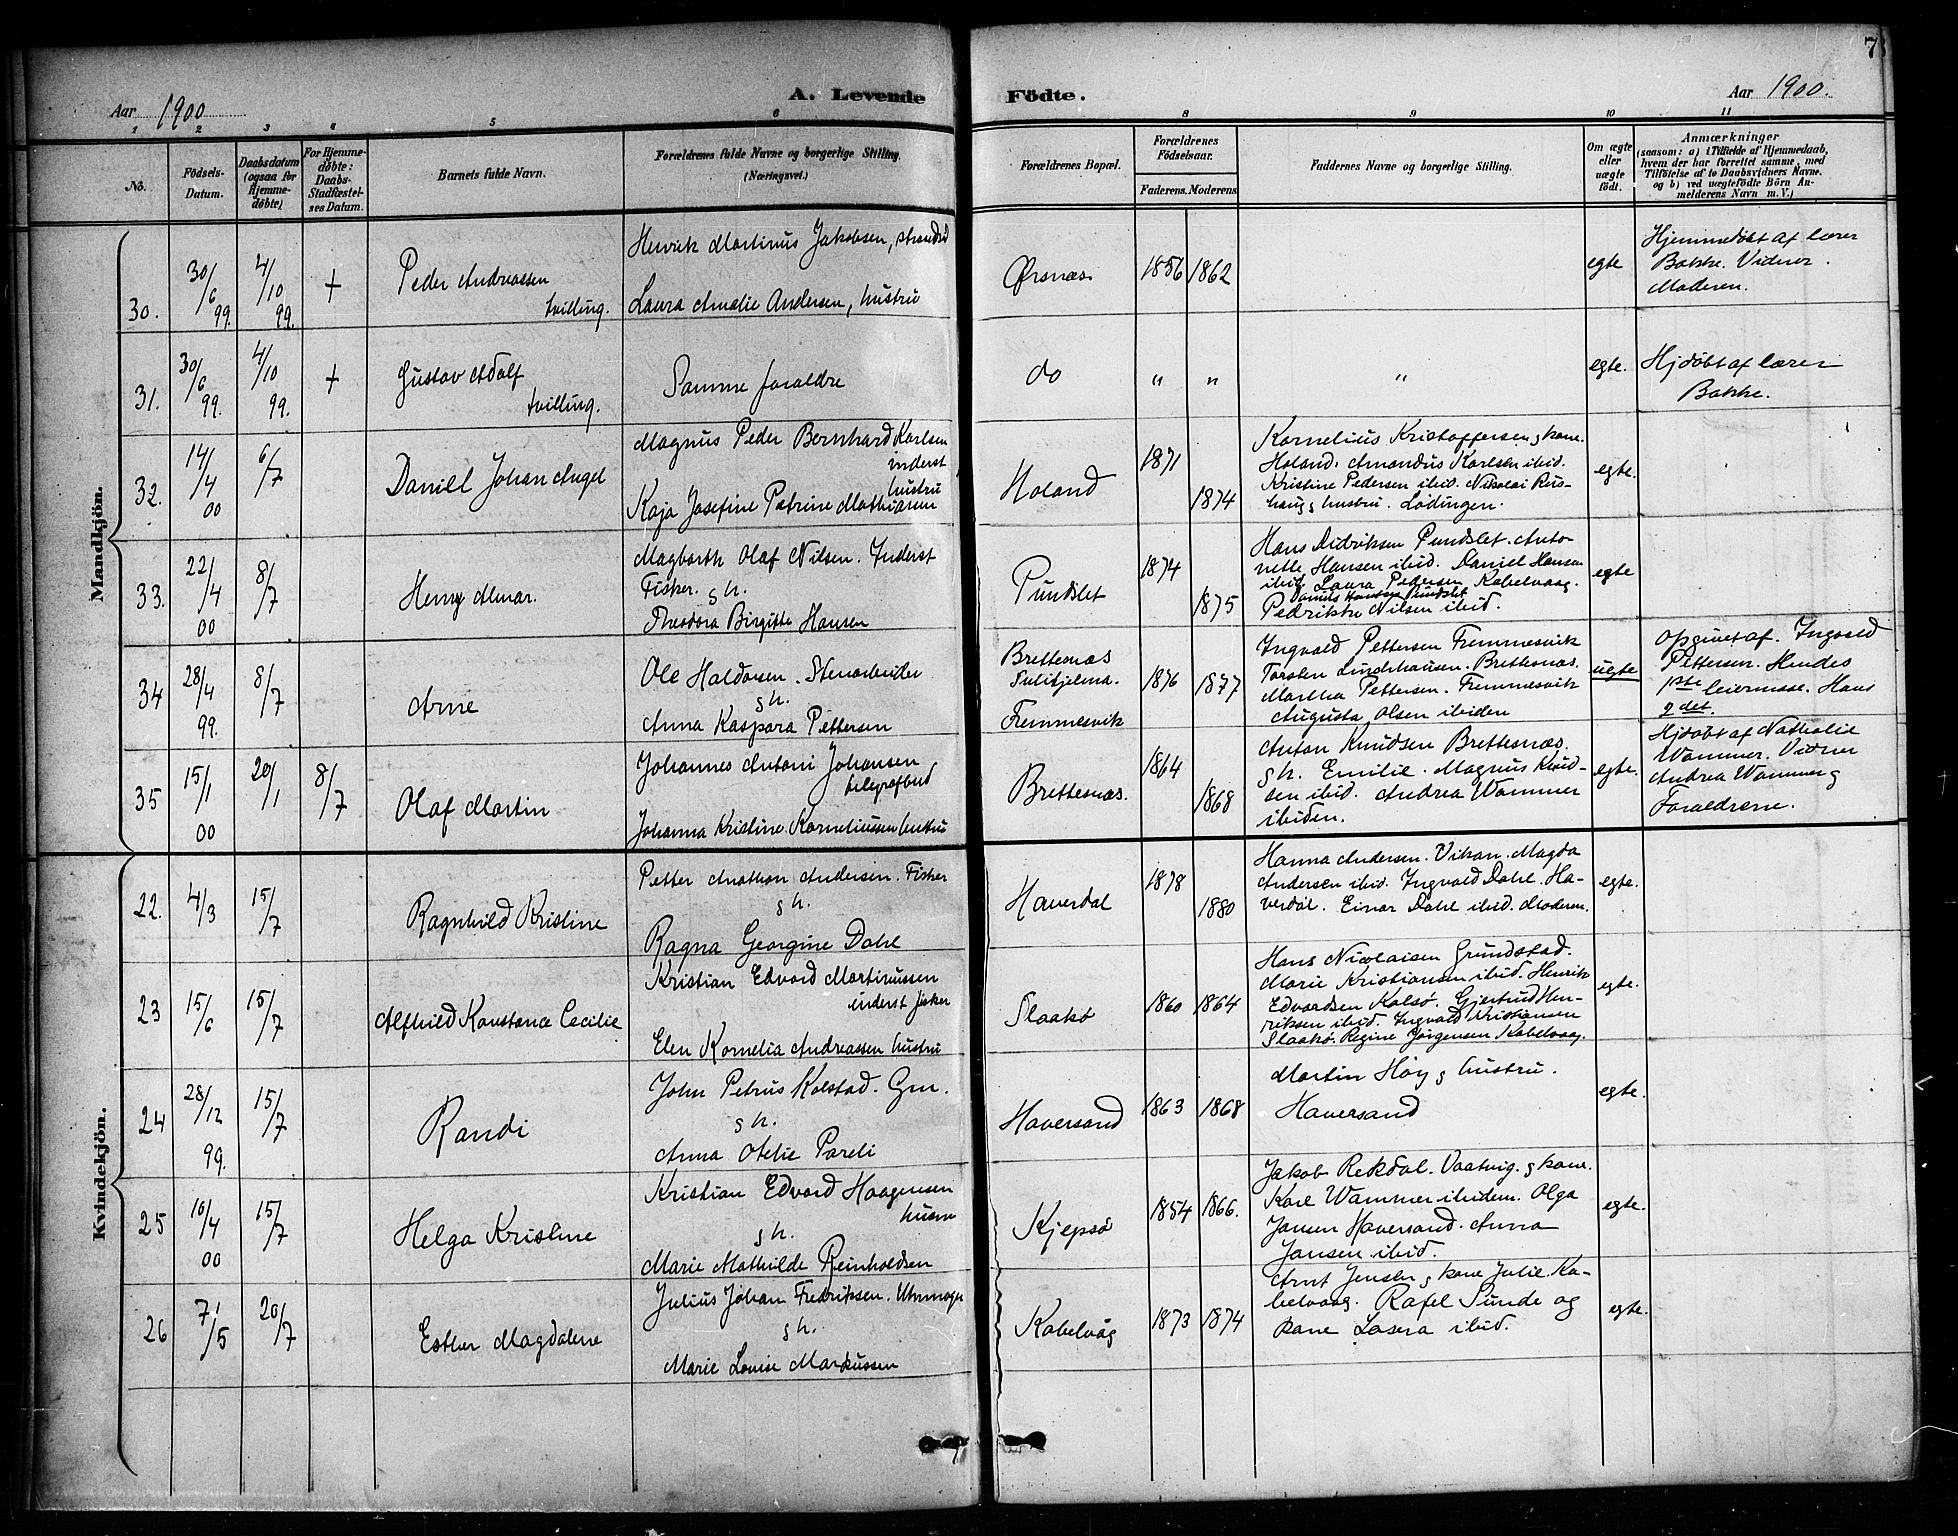 7
Aar 1900
A. Levende Födte.
Aar 1900.
1 2 3 4 5 6 8 9 10 11
No.
Födsels-
Datum.
Daabsdatum
(ogsaa for
Hjemme-
døbte)
For Hjemme-
døbte:
Daabs-
Stadfæstel-
ses Datum.
Barnets fulde Navn.
Forældrenes fulde Navne og borgerlige Stilling.
(Næringsvei.)
Forældrenes Bopæl.
Forældrenes
Födselsaar.
Faderens. Moderens
Faddernes Navne og borgerlige Stilling.
Om ægte
eller
uægte
født.
Anmærkninger
(saasom: a) i Tilfælde af Hjemmedaab,
hvem der har forrettet samme, med
Tilföielse af to Daabsvidners Navne.
og b) ved uægtefödte Börn An-
melderens Navn m. V.)
Mandkjön.
30.
30/6 99.
4/10 99.
+
Peder Andreassen
tvilling.
Henrik Martinus Jakobsen,
Laura Amalie Andersen, hustru
Ørsnæs
1856 1862
egte
Hjemmedøbt af lærer
Bakke. Vidner.
Moderen.
31.
30/6 99.
4/10 99.
+
Gustav Adolf
tvilling.
Samme foraldre
do
" "
"
egte.
Hjdøbt af lærer
Bakke.
32.
14/4 00
6/7
Daniel Johan Angel
Magnus Peder Bernhard Karlsen
inderst
hustru
Kaja Josefine Petrine Mathiasen
Holand
1871
1874
Kornelius Kristoffersen g kone.
Holand. Amandus Karlsen ibid.
Kristine Pedersen ibid. Nikolai Rus-
haug g hustru. Lødingen.
egte.
33.
22/4 00
8/7
Henry Almar.
Magbarth Olaf Nilsen. Inderst
Fisker. g h.
Theodora Birgitte Hansen
Pundslet
1874
1875
Hans Didriksen Pundslet. Anto-
nette Hansen ibid. Daniel Hansen
ibid Laura Pedersen Kabelvaag.
Pundslet
Pedrikke Nilsen ibid.
egte
34
28/4 99.
8/7
Arne
Ole Haldorsen. Stenarbeider
g h.
Anna Kaspara Pettersen
Brettesnæs
Sulitjelma.
Fremmesvik
1876 1877
Ingvald Pettersen Fremmesvik
Torsten Lindchausen. Brettesnæs.
Martha Pettersen. Fremmesvik
Augusta Olsen ibiden
uegte
Opgivet af. Ingvald
Pettersen. Hendes
1ste leiermaal. Hans
2det.
35
15/1 00
20/1
8/7
Olaf Martin
Johannes Antoni Johansen
telegrafbud
Johanna Kristine Korneliussen hustru
Brettesnæs.
1864
1868
Anton Knudsen Brettesnæs.
g h. Emilie. Magnus Knud-
sen ibid. Andrea Wammer
ibiden.
egte.
Hjdøbt af Nathalie
Wammer. Vidner
Andrea Wammer g
Foraldrene.
Kvindekjön.
22.
4/3
15/7
Ragnhild Kristine
Petter Anathon Andersen. Fisker
g h.
Ragna Georgine Dahl
Haverdal
1878
1880
Hanna Andersen. Vikan. Magda
Andersen ibid. Ingvald Dahl. Ha-
verdal. Einar Dahl ibid. Moderen.
egte.
23
15/6
15/7
Alfhild Konstance Cecilie
Kristian Edvard Martinussen
inderst fisker
Elen Kornelia Andreassen hustru
Slaakø
1860 1864
Hans Nicolaisen Grundstad.
Marie Kristiansen ibid. Henrik
Edvardsen Kalsø. Gjertrud Hen-
riksen ibid. Ingvald Kristiansen
Slaakø. Regine Jørgensen Kabelvaag.
egte.
24
28/12 99.
15/7
Randi
John Petrus Kolstad. Gm.
g h.
Anna Otelie Pareli
Haversand
1863 1868
Martin Høy g hustru.
Haversand
egte.
25
10/4 00
15/7
Helga Kristine
Kristian Edvard Haagensen
husm
g h.
Marie Mathilde Reinholdsen
Kjepsø
1854 1866.
Jakob Rekdal. Vaatvig. g kone.
Karl Wammer ibidem. Olga
Jansen Haversand. Anna
Jansen ibid.
egte.
26
7/5
20/7
Esther Magdalene
Julius Johan Fredriksen. Uhrmager
g h.
Marie Louise Markussen
Kabelvåg
1873 1874
Arnt Jensen g kone Julie. Ka-
belvaag. Rafel Sunde og
kone Lasera ibid.
egte.